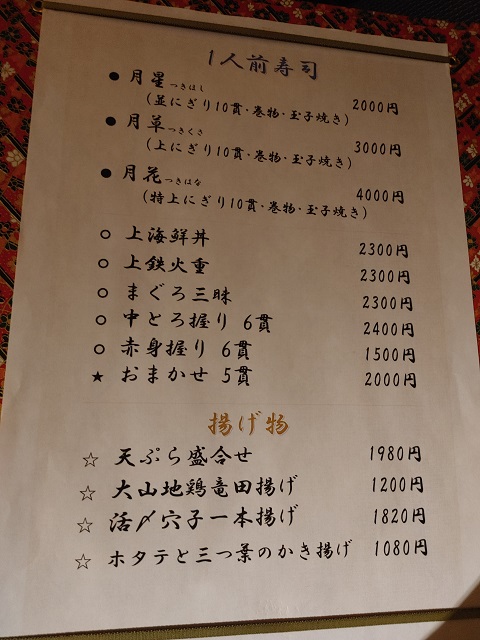 1人前寿司
● 月星 つきほし 2000円
(並にぎり10貫・巻物・玉子焼き)
● 月草 つきくさ 3000円
(上にぎり10貫・巻物・玉子焼き)
● 月花 つきはな 4000円
(特上にぎり10貫・巻物・玉子焼き)
○ 上海鮮丼 2300円
○ 上鉄火重 2300円
○ まぐろ三昧 2300円
○ 中とろ握り 6貫 2400円
○ 赤身握り 6貫 1500円
★ おまかせ 5貫 2000円
揚げ物
☆ 天ぷら盛合せ 1980円
☆ 大山地鶏竜田揚げ 1200円
☆ 活〆穴子一本揚げ 1820円
☆ ホタテと三つ葉のかき揚げ 1080円